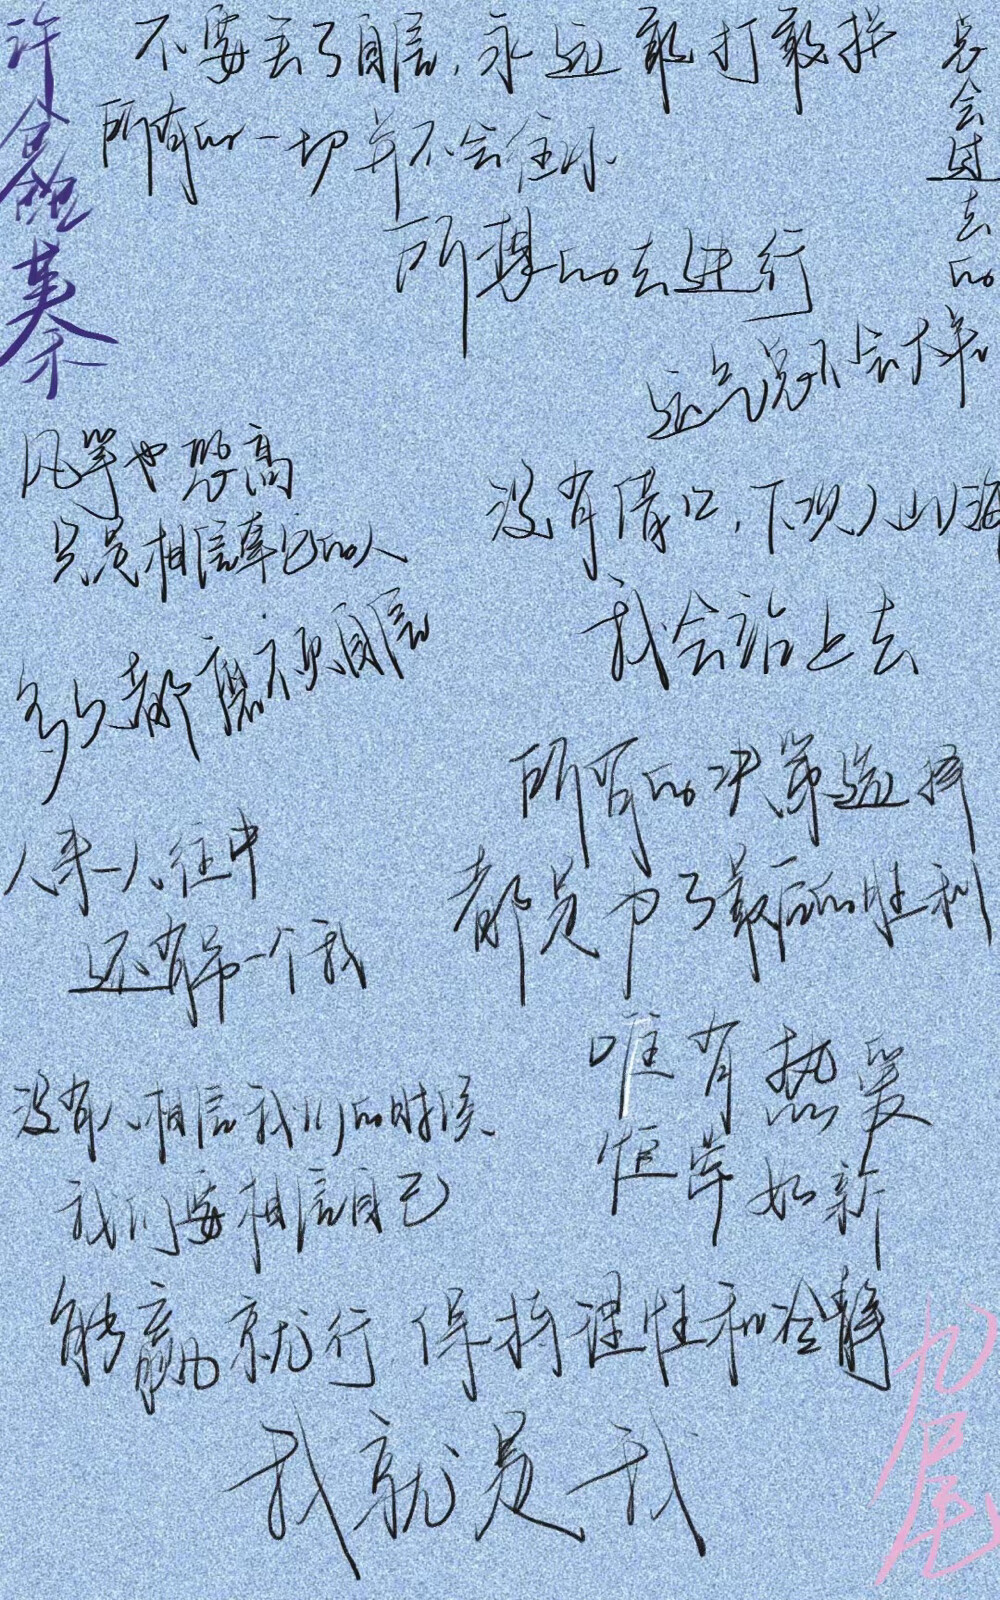 许鑫蓁
不要丢了自信,永远敢打敢拼
所有的一切并不会往你
所想的去进行
总会过去的
运气总不会太差
风筝也想高
只是相信牵它的人
多久都磨不灭自信
没有借口,下观人山人海
我会站上去
所有的决策选择
都是为了最后的胜利
人来人往中
还有第一个我
唯有热爱
恒常如新
没有人相信我们的时候
我们要相信自己
能赢就行 保持理性和冷静
我就是我
九尾